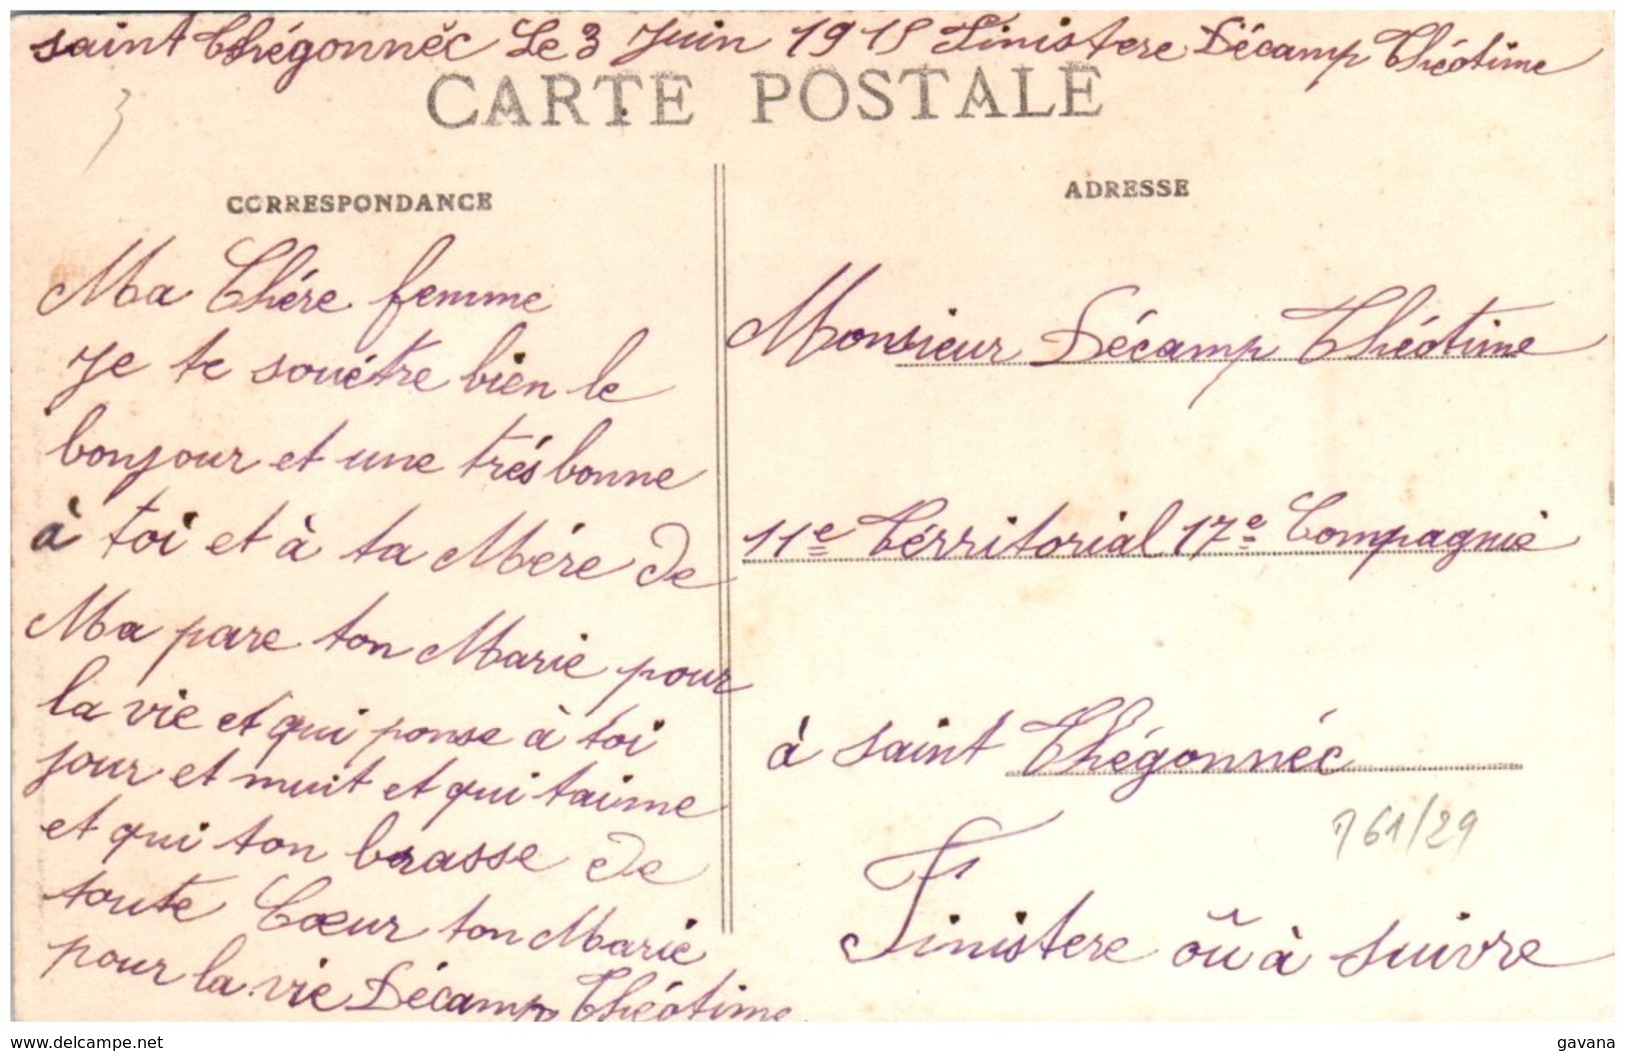 saint Thégonnèc Le 3 Juin 1915 Finistere Décamp Théotime
CARTE POSTALE
CORRESPONDANCE
Ma Chére femme
Je te souétre bien le
bonjour et une trés bonne
à toi et à ta Mére de
Ma pare ton Marie pour
la vie et qui ponse à toi
jour et nuit et qui taime
et qui ton brasse de
toute Cœur ton Marie
pour la vie Décamp Théotime
ADRESSE
Monsieur Décamp Théotime
11e Térritorial 17e Compagnie
à saint Thégonnéc
761/29
Finistere oû à suivre
www.delcampe.net
gavana